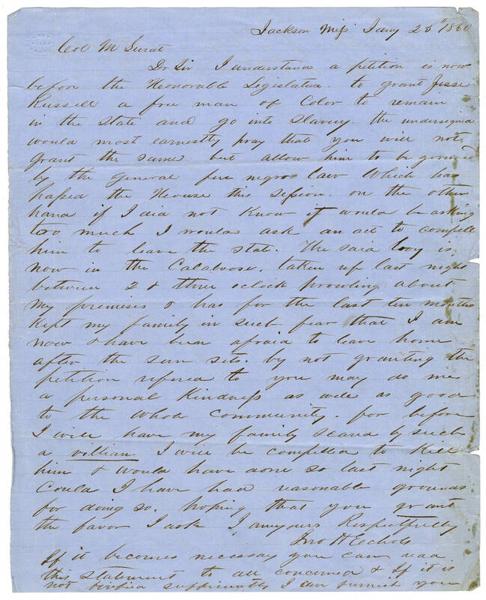 Jackson Mip Jany 25th 1860
Col M Surat
Dr Sir I understand a petition is now
before the Honorable Legislature to grant Jesse
Russell a free man of Color to remain
in the State and go into Slavery. the undersigned
would most earnestly pray that you will not
grant the same but allow him to be governed
by the General free negros law which has
passed the House this session. on the other
hand if I did not know it would be asking
too much I would ask an act to compell
him to leave the state. The said boy is
now in the Calaboose. taken up last night
between 2 & three oclock prowling about
my premises & has for the last ten months
Kept my family in such fear that I am
now & have been afraid to leave home
after the sun sets. by not granting the
petition refered to you may do me
a personal Kindness as well as good
to the whole community. for before
I will have my family scared by such
a villian. I will be compelled to Kill
him & would have done so last night
Could I have had reasonable grounds
for doing so. hoping that you grant
the favor I ask I am yours Respectfully
Jno H Echols
If it becomes necessary you can read
this statement to all concerned & if it is
not sufficiently I can furnish you